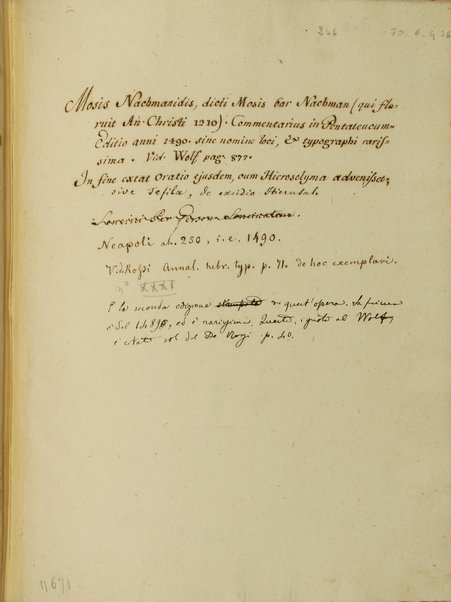 246 - 79. 6. G 26
Mosis Nachmanidis, dicti Mosis bar Nachman (qui flo-
ruit An: Christi 1210). Commentarius in Pentateucum
Editio anni 1490. sine nomine loci, & typographi raris-
sima. Vid: Wolf pag. 877.
In fine extat Oratio ejusdem, cum Hierosolyma advenisset,
sive Tefilà, de excidio Hierusal.
Soncini Per Gersom Soncinatem.
Neapoli an. 250, i. e. 1490.
Vid. Rossi Annal. hebr. typ. p. 71. de hoc exemplari.
n° XXXI
È la seconda edizione stampata di quest'opera. La prima
è del 1489, ed è rarissima. Questa, ignota al Wolf,
è citata dal De Rossi p. 40.
11671